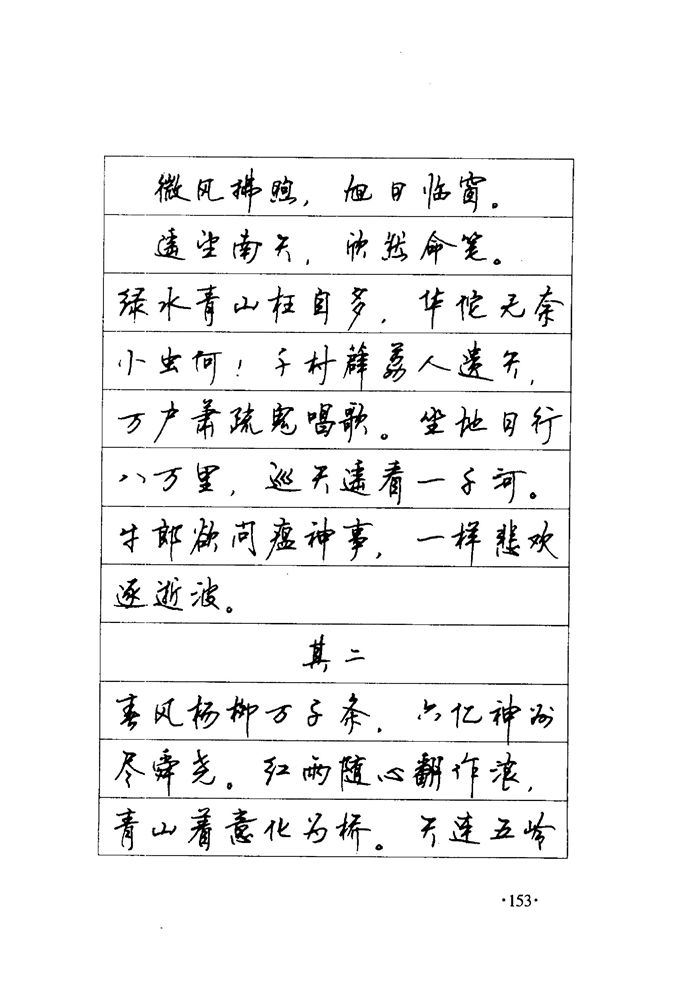 微风拂煦，旭日临窗。
遥望南天，欣然命笔。
绿水青山枉自多，华佗无奈
小虫何！千村薜荔人遗矢，
万户萧疏鬼唱歌。坐地日行
八万里，巡天遥看一千河。
牛郎欲问瘟神事，一样悲欢
逐逝波。
其二
春风杨柳万千条，六亿神州
尽舜尧。红雨随心翻作浪，
青山着意化为桥。天连五岭
·153·